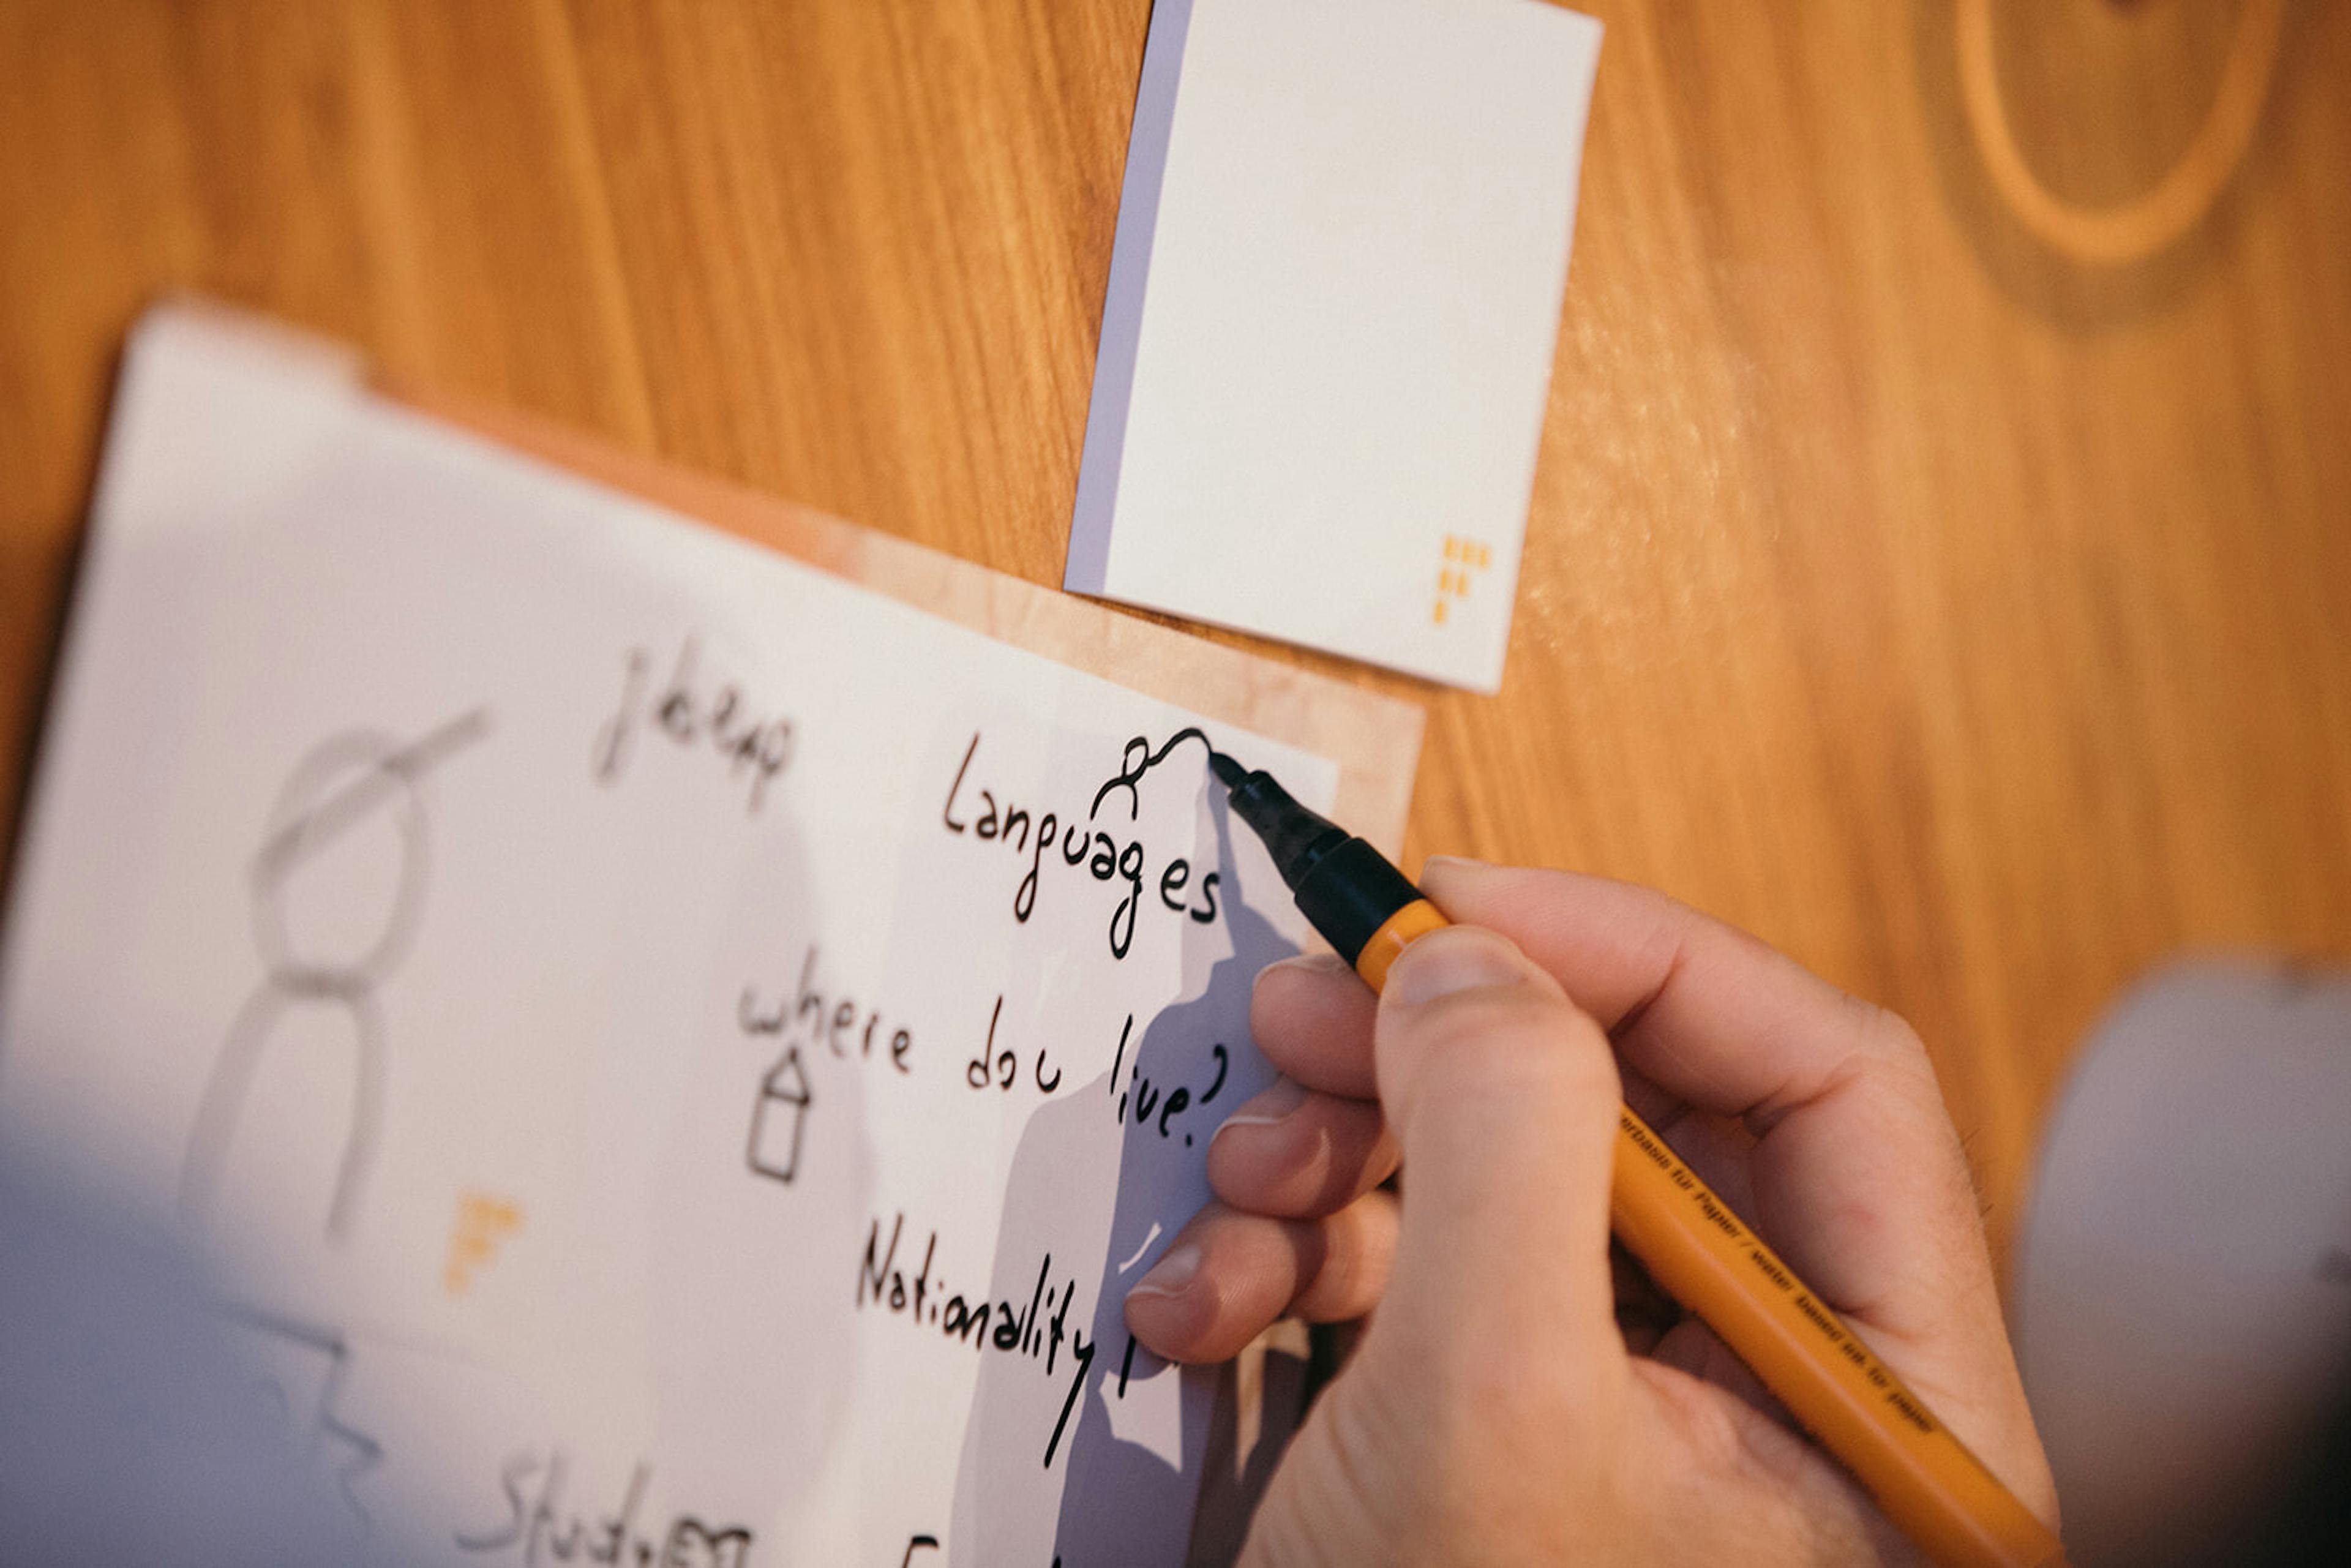 Languages
where do u live?
Nationality
Stud
erbasis für Papier / water based ink for paper